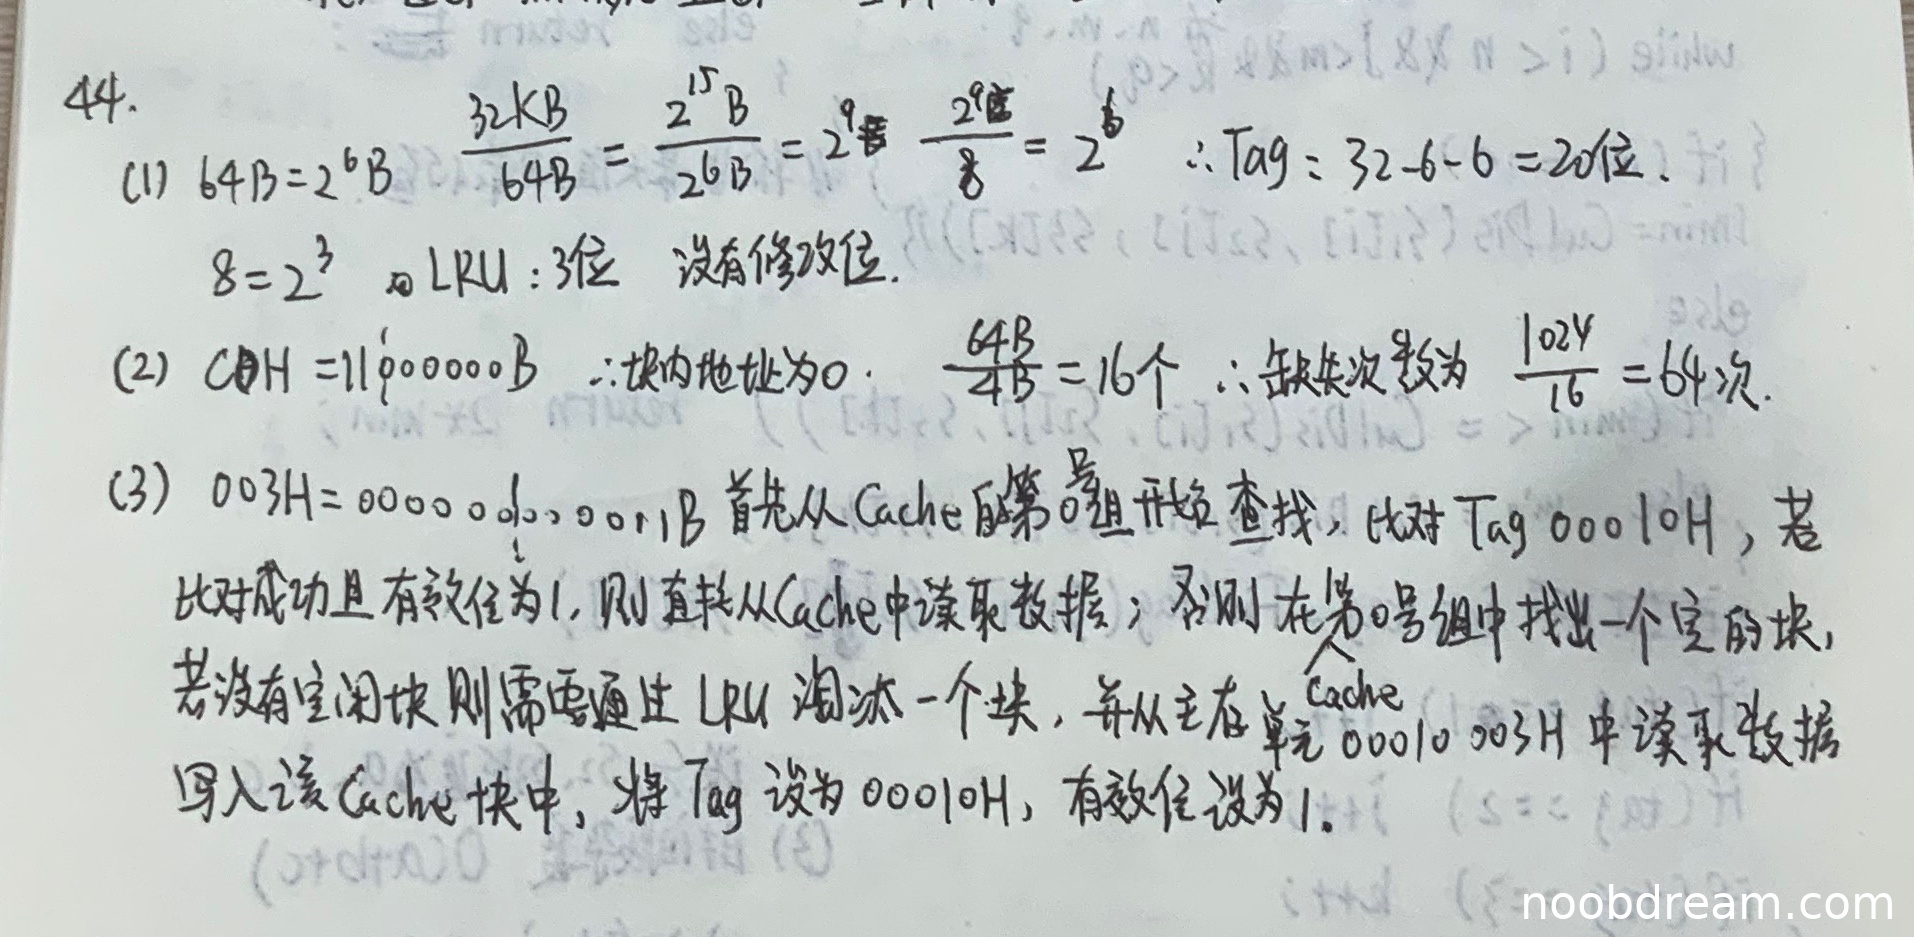 44.
(1) 64B=2^6B 32KB/64B = 2^15B/2^6B = 2^9 2^9/8 = 2^6 ∴Tag: 32-6-6=20位.
8=2^3 LRU:3位 没有修改位.
(2) C0H=11000000B ∴块内地址为0. 64B/4B=16个 ∴缺失次数为 1024/16=64次.
(3) 003H=000000000011B 首先从Cache的第0号组开始查找, 比对Tag 00010H, 若
比对成功且有效位为1, 则直接从Cache中读取数据; 否则在Cache第0号组中找出一个空的块,
若没有空闲块则需要通过LRU淘汰一个块, 并从主存单元00010 003H中读取数据
写入该Cache块中, 将Tag设为00010H, 有效位设为1.
noobdream.com